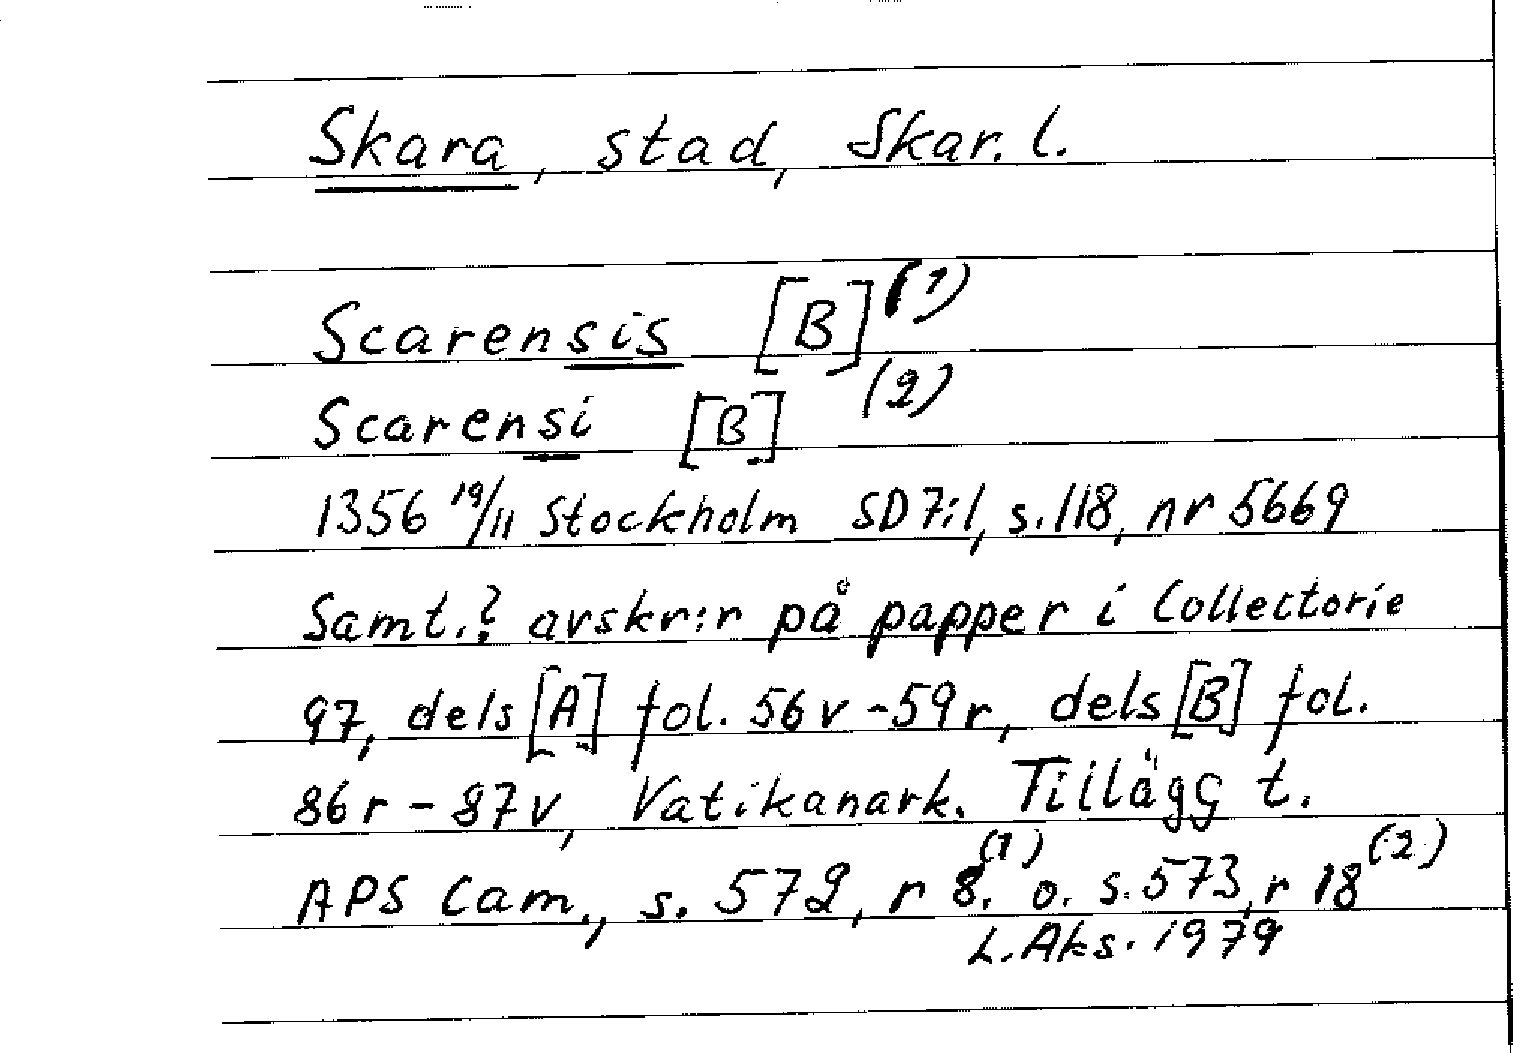 Skara, stad, Skar. l.
Scarensis [B] (1)
Scarensi [B] (2)
1356 19/11 Stockholm SD 7:1, s. 118, nr 5669
Samt.? avskr:r på papper i Collectorie
97, dels [A] fol. 56 v - 59 r, dels [B] fol.
86 r - 87 v, Vatikanark. Tillägg t.
APS Cam., s. 572, r 8. (1) o. s. 573, r 18 (2)
L. Aks. 1979